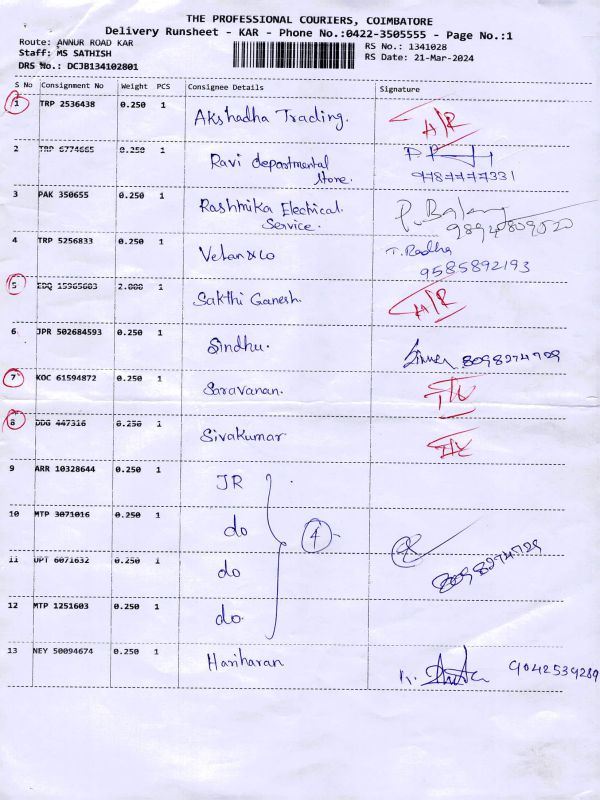 THE PROFESSIONAL COURIERS, COIMBATORE
Delivery Runsheet - KAR - Phone No.:0422-3505555 - Page No.:1
Route: ANNUR ROAD KAR
RS No.: 1341028
Staff: MS SATHISH
RS Date: 21-Mar-2024
DRS No.: DCJB134102801
S No Consignment No Weight PCS Consignee Details Signature
1 TRP 2536438 0.250 1 Akshadha Trading. A/R
2 TRP 6774665 0.250 1 Ravi departmental
Store.
3 PAK 350655 0.250 1 Rashmika Electrical
Service. 98940809520
4 TRP 5256833 0.250 1 Vetan & Co T. Radha
9585892193
5 EDQ 15965603 2.000 1 Sakthi Ganesh. A/R
6 JPR 502684593 0.250 1 Sindhu. 8098274729
7 KOC 61594872 0.250 1 Saravanan.
8 DDG 447316 0.250 1 Sivakumar
9 ARR 10328644 0.250 1 JR
10 MTP 3071016 0.250 1 do 4
11 UPT 6071632 0.250 1 do 8098274729
12 MTP 1251603 0.250 1 do.
13 NEY 50094674 0.250 1 Hariharan 9042539289